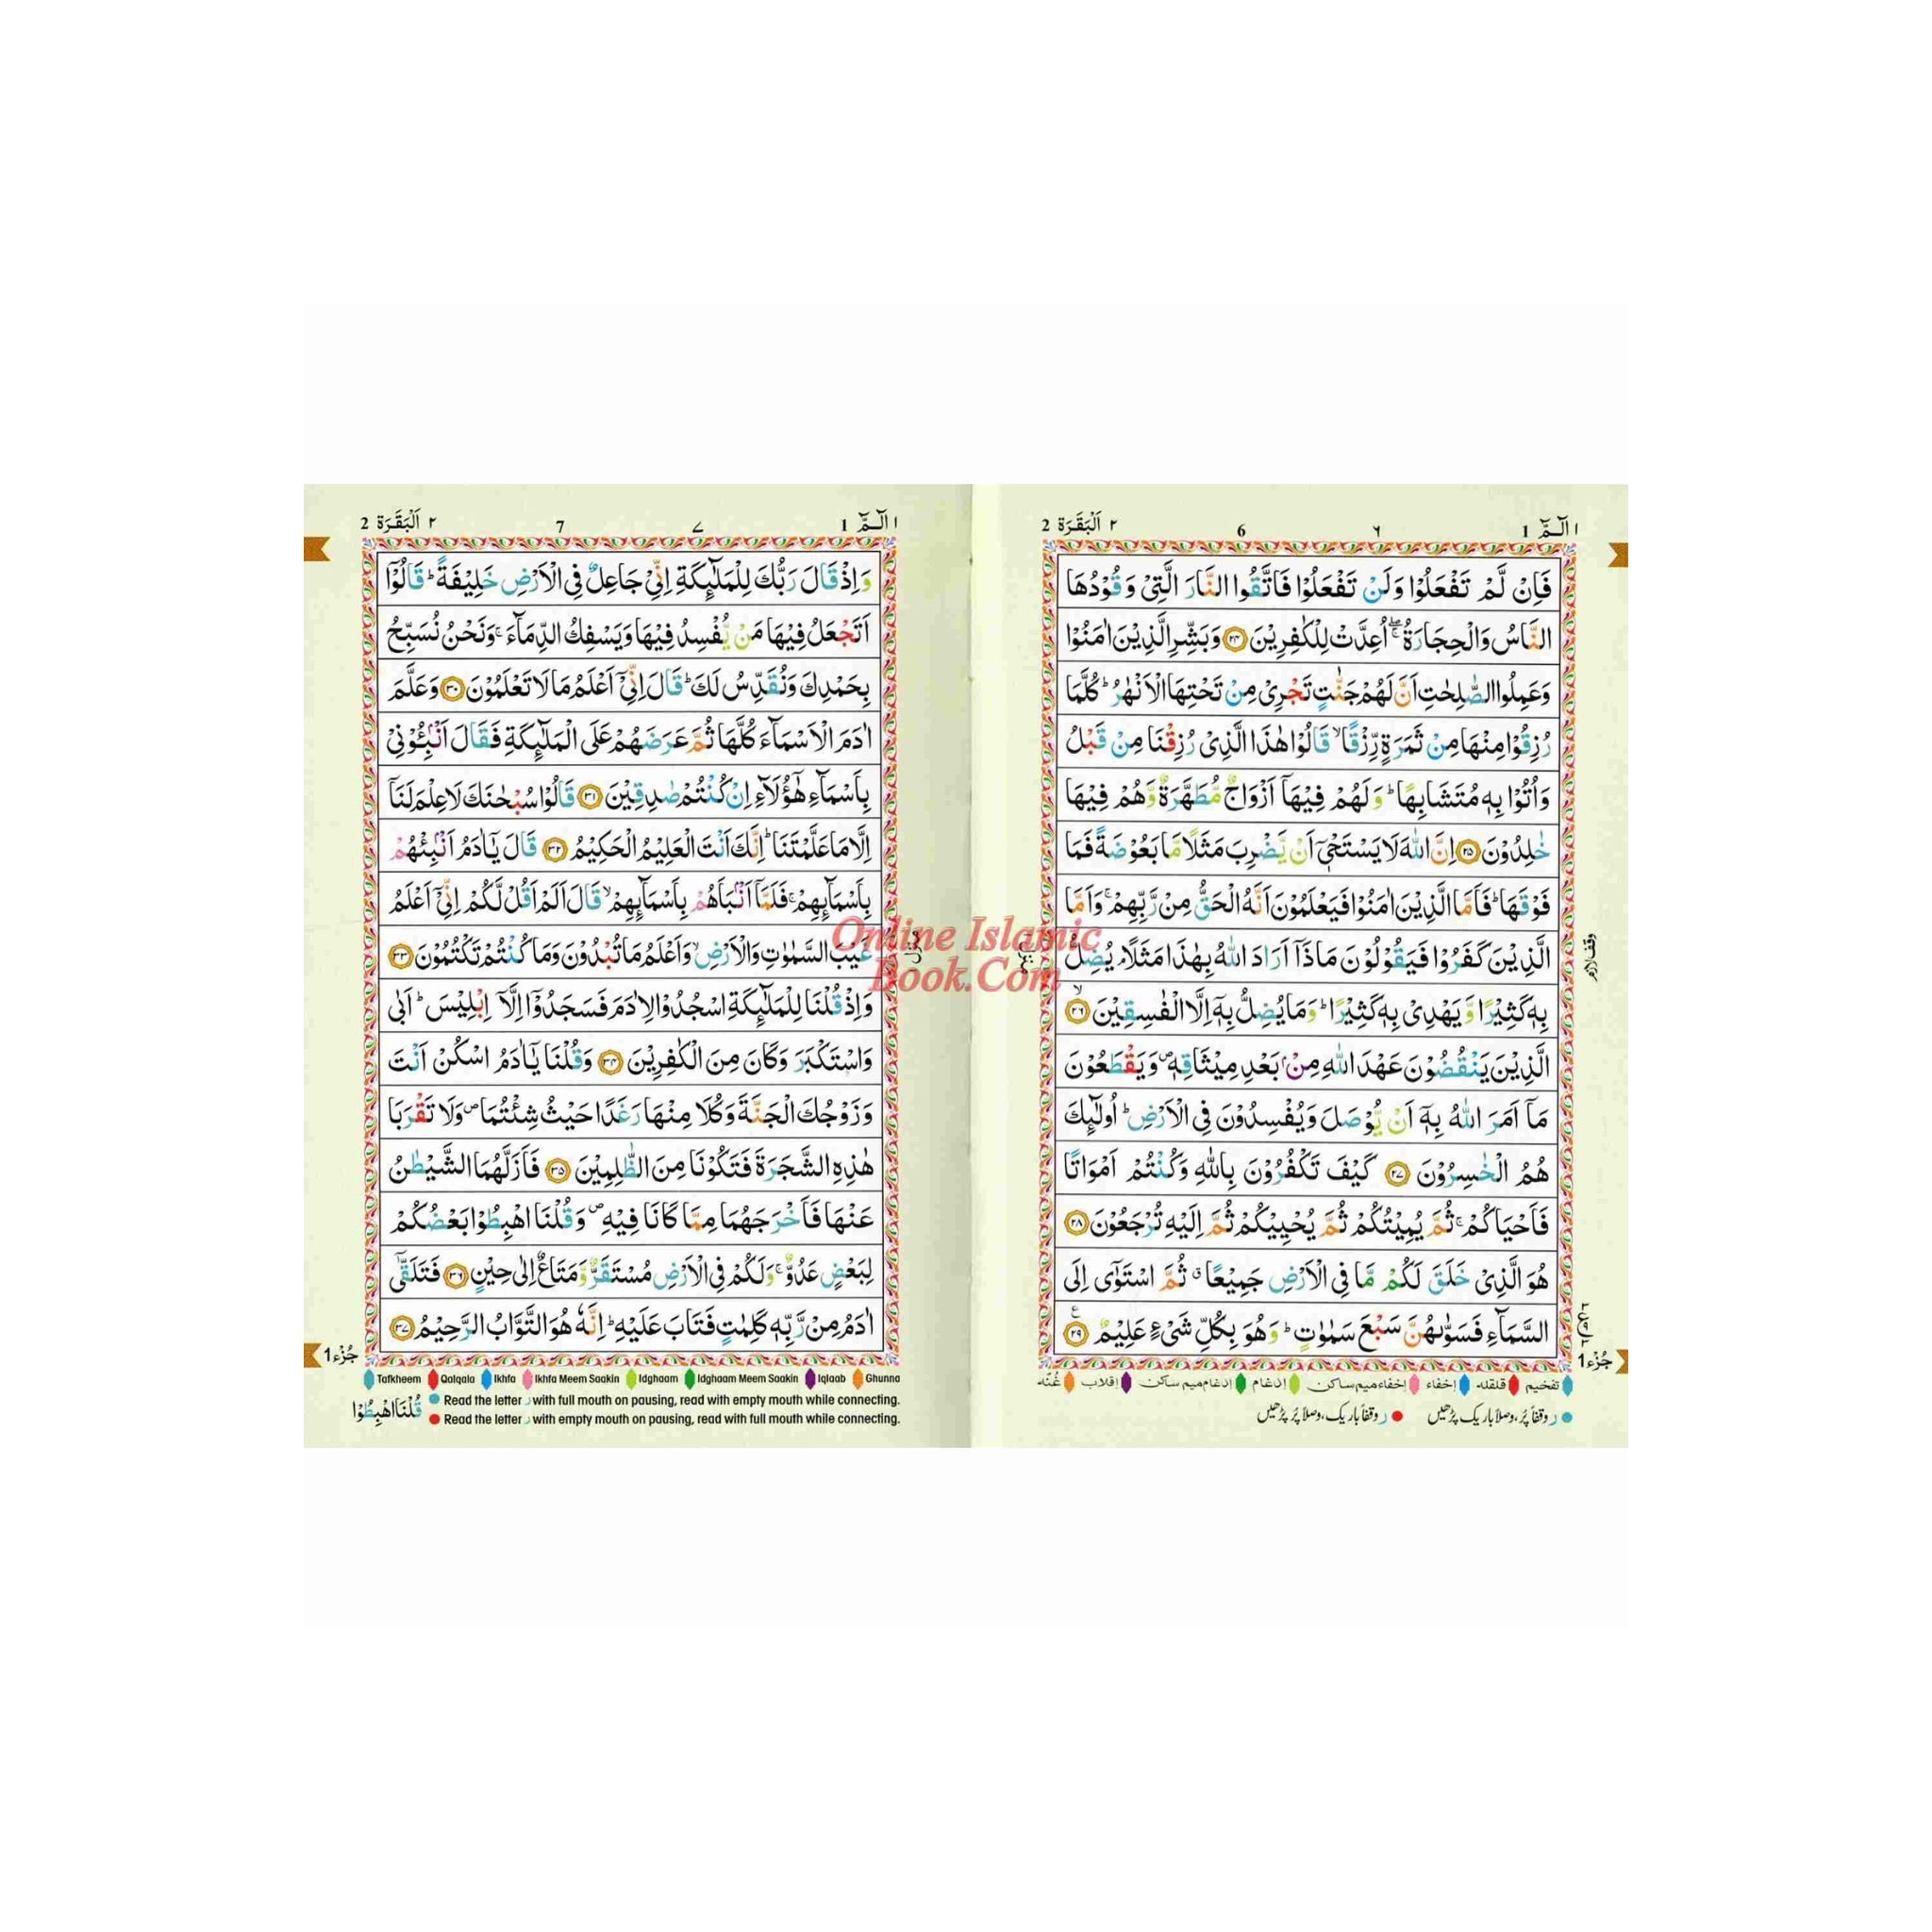 ١ الٓـمّٓ 1
٦ 6
٢ اَلْبَقَرَة 2
فَاِنْ لَّمْ تَفْعَلُوْا وَلَنْ تَفْعَلُوْا فَاتَّقُوا النَّارَ الَّتِیْ وَقُوْدُهَا
النَّاسُ وَالْحِجَارَةُ ۖۚ اُعِدَّتْ لِلْكٰفِرِیْنَ ﴿۲۴﴾ وَبَشِّرِ الَّذِیْنَ اٰمَنُوْا
وَعَمِلُوا الصّٰلِحٰتِ اَنَّ لَهُمْ جَنّٰتٍ تَجْرِیْ مِنْ تَحْتِهَا الْاَنْهٰرُ ؕ كُلَّمَا
رُزِقُوْا مِنْهَا مِنْ ثَمَرَةٍ رِّزْقًا ۙ قَالُوْا هٰذَا الَّذِیْ رُزِقْنَا مِنْ قَبْلُ
وَاُتُوْا بِهٖ مُتَشَابِهًا ؕ وَلَهُمْ فِیْهَاۤ اَزْوَاجٌ مُّطَهَّرَةٌ وَّهُمْ فِیْهَا
خٰلِدُوْنَ ﴿۲۵﴾ اِنَّ اللّٰهَ لَا یَسْتَحْیٖۤ اَنْ یَّضْرِبَ مَثَلًا مَّا بَعُوْضَةً فَمَا
فَوْقَهَا ؕ فَاَمَّا الَّذِیْنَ اٰمَنُوْا فَیَعْلَمُوْنَ اَنَّهُ الْحَقُّ مِنْ رَّبِّهِمْ ۚ وَاَمَّا
الَّذِیْنَ كَفَرُوْا فَیَقُوْلُوْنَ مَاذَاۤ اَرَادَ اللّٰهُ بِهٰذَا مَثَلًا ۘ یُضِلُّ
بِهٖ كَثِیْرًا وَّیَهْدِیْ بِهٖ كَثِیْرًا ؕ وَمَا یُضِلُّ بِهٖۤ اِلَّا الْفٰسِقِیْنَ ۙ﴿۲۶﴾
الَّذِیْنَ یَنْقُضُوْنَ عَهْدَ اللّٰهِ مِنْۢ بَعْدِ مِیْثَاقِهٖ ۪ وَیَقْطَعُوْنَ
مَاۤ اَمَرَ اللّٰهُ بِهٖۤ اَنْ یُّوْصَلَ وَیُفْسِدُوْنَ فِی الْاَرْضِ ؕ اُولٰٓىِٕكَ
هُمُ الْخٰسِرُوْنَ ﴿۲۷﴾ كَیْفَ تَكْفُرُوْنَ بِاللّٰهِ وَكُنْتُمْ اَمْوَاتًا
فَاَحْیَاكُمْ ۚ ثُمَّ یُمِیْتُكُمْ ثُمَّ یُحْیِیْكُمْ ثُمَّ اِلَیْهِ تُرْجَعُوْنَ ﴿۲۸﴾
هُوَ الَّذِیْ خَلَقَ لَكُمْ مَّا فِی الْاَرْضِ جَمِیْعًا ۗ ثُمَّ اسْتَوٰۤی اِلَی
السَّمَآءِ فَسَوّٰىهُنَّ سَبْعَ سَمٰوٰتٍ ؕ وَهُوَ بِكُلِّ شَیْءٍ عَلِیْمٌ ﴿۲۹﴾
وقف لازم
جُزْء 1
تفخیم قلقله إخفاء إخفاء میم ساکن إدغام إدغام میم ساکن إقلاب غُنّه
ر وقفاً پُر، وصلاً باریک پڑھیں ر وقفاً باریک، وصلاً پُر پڑھیں
١ الٓـمّٓ 1
٧ 7
٢ اَلْبَقَرَة 2
وَاِذْ قَالَ رَبُّكَ لِلْمَلٰٓىِٕكَةِ اِنِّیْ جَاعِلٌ فِی الْاَرْضِ خَلِیْفَةً ؕ قَالُوْۤا
اَتَجْعَلُ فِیْهَا مَنْ یُّفْسِدُ فِیْهَا وَیَسْفِكُ الدِّمَآءَ ۚ وَنَحْنُ نُسَبِّحُ
بِحَمْدِكَ وَنُقَدِّسُ لَكَ ؕ قَالَ اِنِّیْۤ اَعْلَمُ مَا لَا تَعْلَمُوْنَ ﴿۳۰﴾ وَعَلَّمَ
اٰدَمَ الْاَسْمَآءَ كُلَّهَا ثُمَّ عَرَضَهُمْ عَلَی الْمَلٰٓىِٕكَةِ فَقَالَ اَنْۢبِـُٔوْنِیْ
بِاَسْمَآءِ هٰۤؤُلَآءِ اِنْ كُنْتُمْ صٰدِقِیْنَ ﴿۳۱﴾ قَالُوْا سُبْحٰنَكَ لَا عِلْمَ لَنَاۤ
اِلَّا مَا عَلَّمْتَنَا ؕ اِنَّكَ اَنْتَ الْعَلِیْمُ الْحَكِیْمُ ﴿۳۲﴾ قَالَ یٰۤاٰدَمُ اَنْۢبِئْهُمْ
بِاَسْمَآىِٕهِمْ ۚ فَلَمَّاۤ اَنْۢبَاَهُمْ بِاَسْمَآىِٕهِمْ ۙ قَالَ اَلَمْ اَقُلْ لَّكُمْ اِنِّیْۤ اَعْلَمُ
غَیْبَ السَّمٰوٰتِ وَالْاَرْضِ ۙ وَاَعْلَمُ مَا تُبْدُوْنَ وَمَا كُنْتُمْ تَكْتُمُوْنَ ﴿۳۳﴾
وَاِذْ قُلْنَا لِلْمَلٰٓىِٕكَةِ اسْجُدُوْا لِاٰدَمَ فَسَجَدُوْۤا اِلَّاۤ اِبْلِیْسَ ؕ اَبٰی
وَاسْتَكْبَرَ وَكَانَ مِنَ الْكٰفِرِیْنَ ﴿۳۴﴾ وَقُلْنَا یٰۤاٰدَمُ اسْكُنْ اَنْتَ
وَزَوْجُكَ الْجَنَّةَ وَكُلَا مِنْهَا رَغَدًا حَیْثُ شِئْتُمَا ۪ وَلَا تَقْرَبَا
هٰذِهِ الشَّجَرَةَ فَتَكُوْنَا مِنَ الظّٰلِمِیْنَ ﴿۳۵﴾ فَاَزَلَّهُمَا الشَّیْطٰنُ
عَنْهَا فَاَخْرَجَهُمَا مِمَّا كَانَا فِیْهِ ۪ وَقُلْنَا اهْبِطُوْا بَعْضُكُمْ
لِبَعْضٍ عَدُوٌّ ۚ وَلَكُمْ فِی الْاَرْضِ مُسْتَقَرٌّ وَّمَتَاعٌ اِلٰی حِیْنٍ ﴿۳۶﴾ فَتَلَقّٰۤی
اٰدَمُ مِنْ رَّبِّهٖ كَلِمٰتٍ فَتَابَ عَلَیْهِ ؕ اِنَّهٗ هُوَ التَّوَّابُ الرَّحِیْمُ ﴿۳۷﴾
جُزْء 1
Tafkheem Qalqala Ikhfa Ikhfa Meem Saakin Idghaam Idghaam Meem Saakin Iqlaab Ghunna
Read the letter ر with full mouth on pausing, read with empty mouth while connecting.
Read the letter ر with empty mouth on pausing, read with full mouth while connecting.
قُلْنَا اهْبِطُوْا
Online Islamic
Book.Com